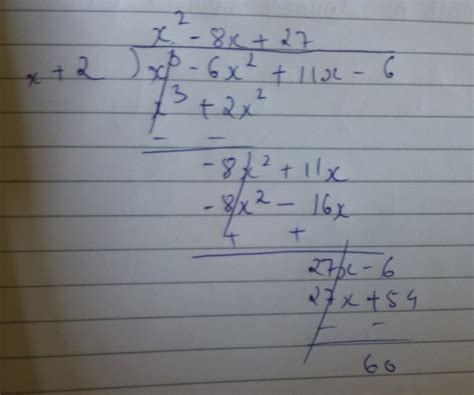 x² - 8x + 27
x + 2 ) x³ - 6x² + 11x - 6
x³ + 2x²
- -
-8x² + 11x
-8x² - 16x
+ +
27x - 6
27x + 54
- -
60